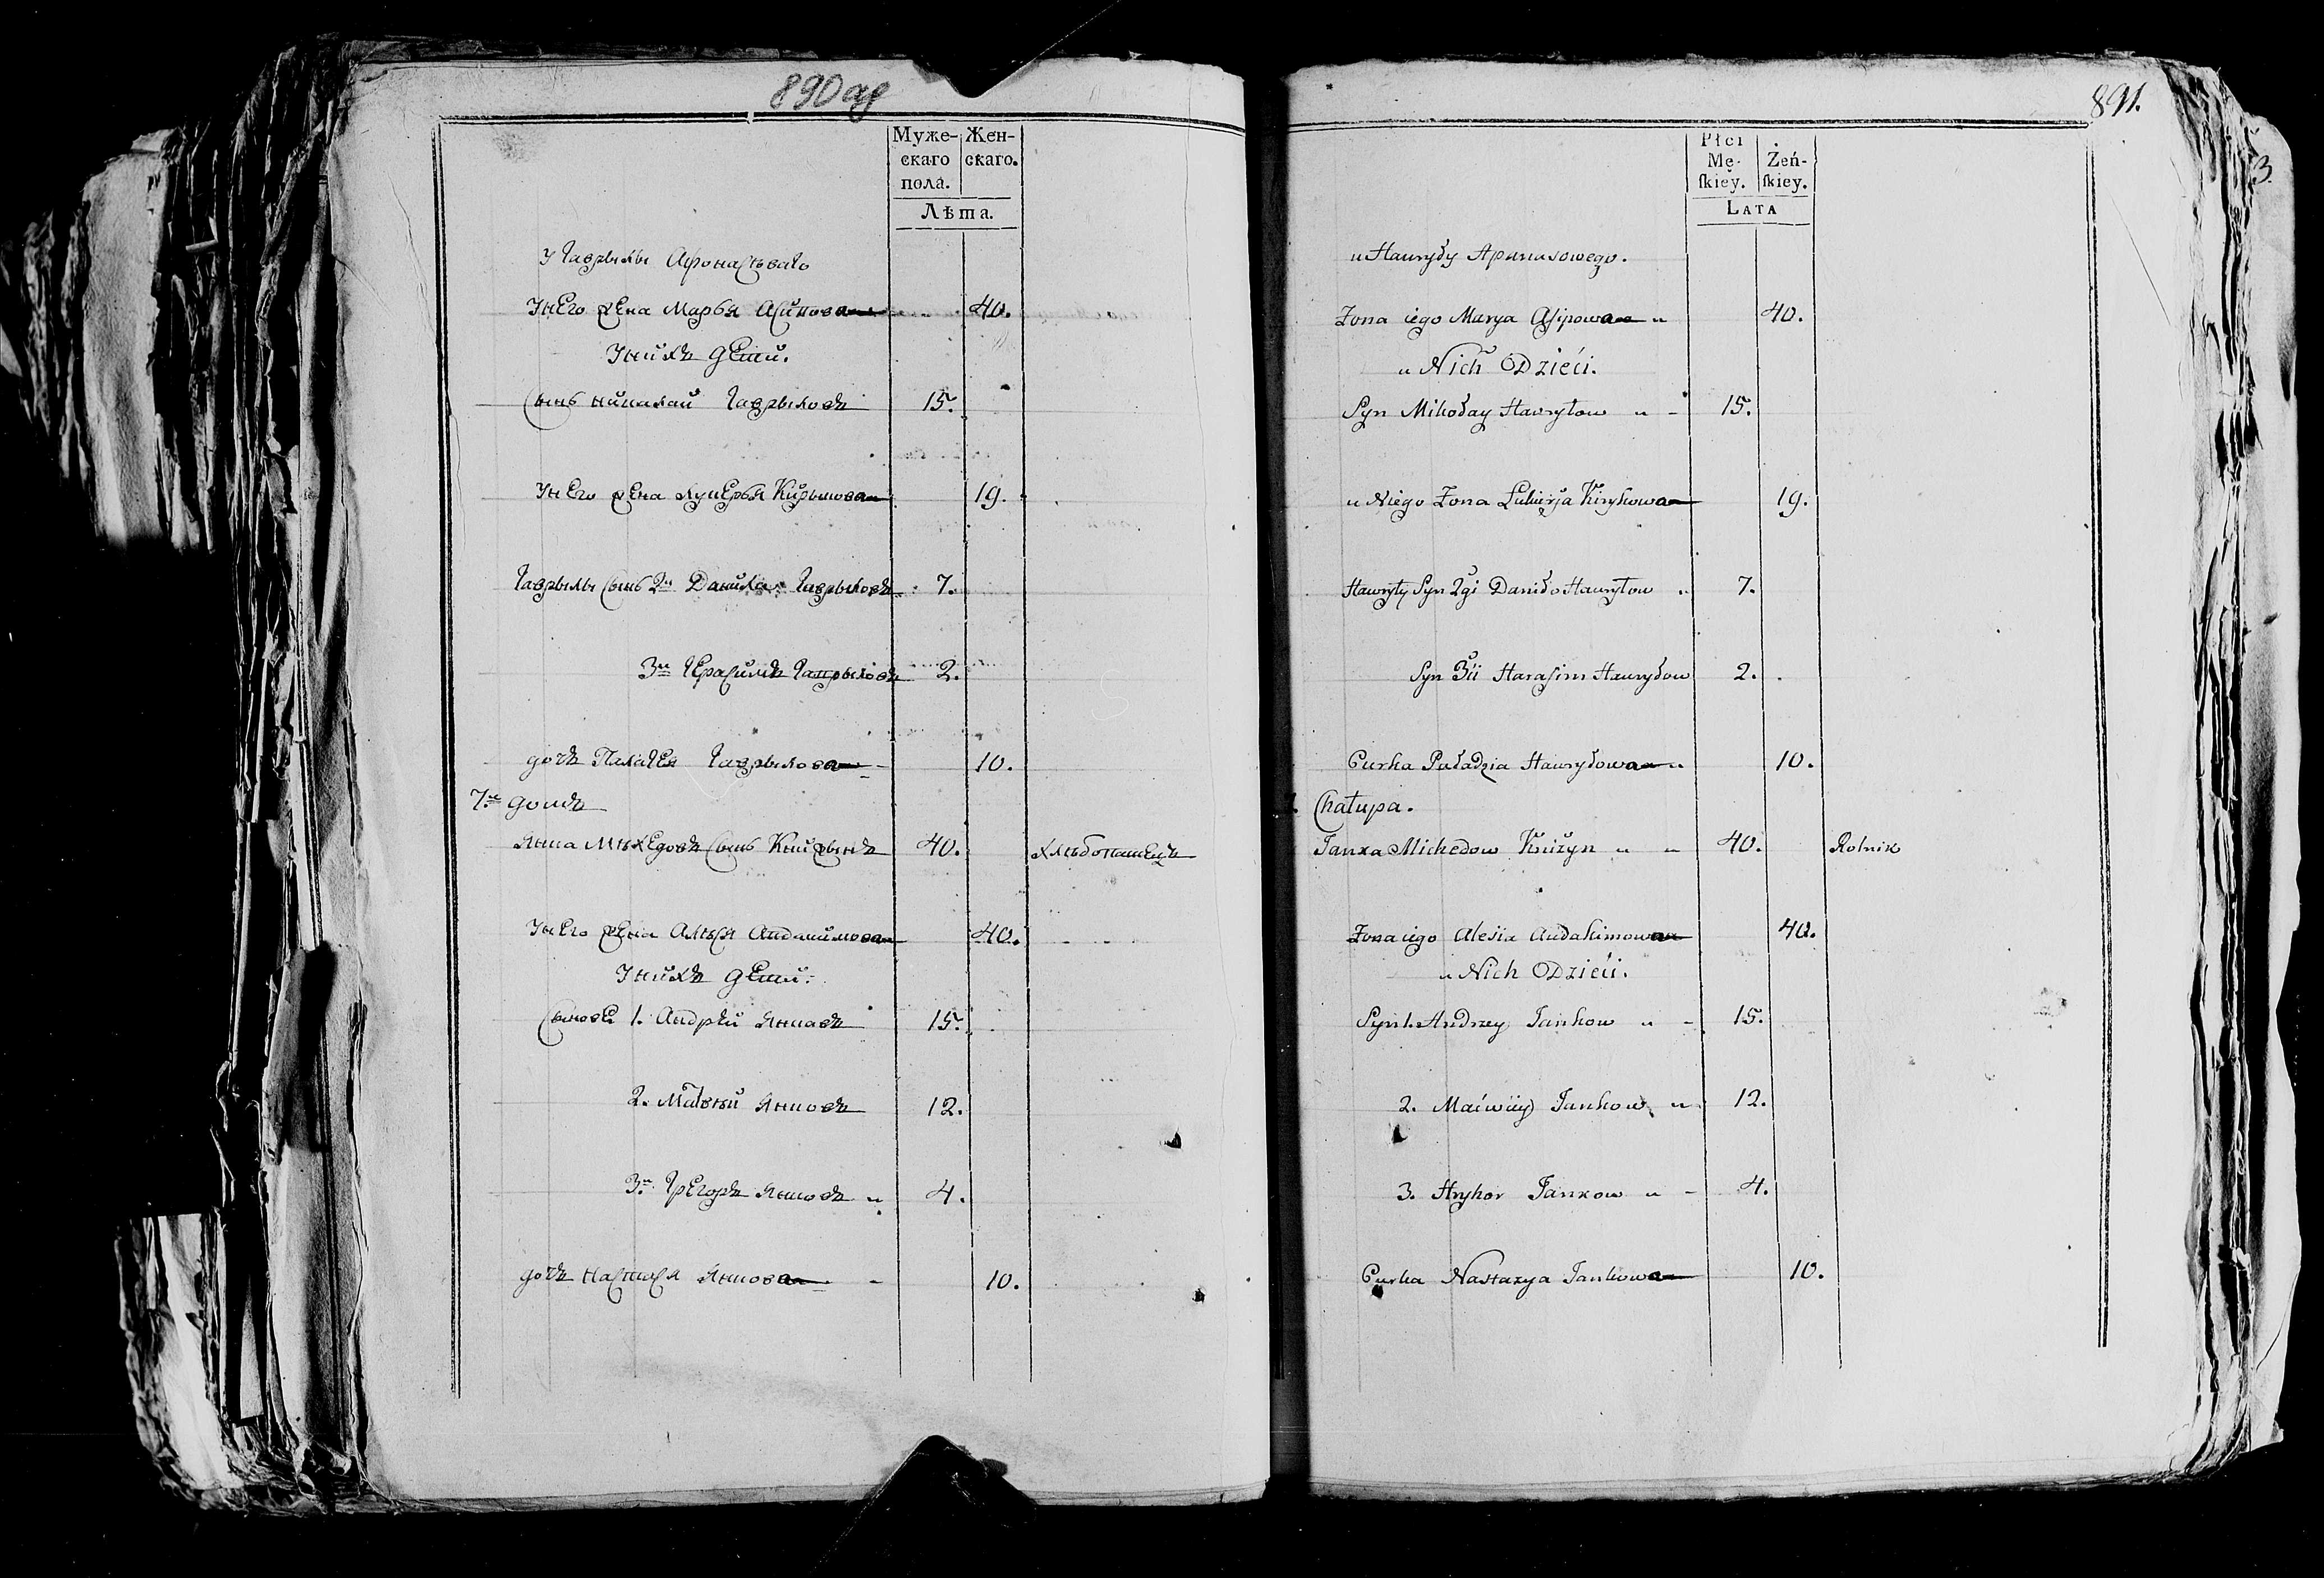 890 об
Муже-
скаго
пола.
Жен-
скаго.
Лѣта.
У Гаврылы Афонасьваго
У нЕго жЕна Марья Асипова 40.
У нихъ дЕти.
Сынъ николай Гаврыловъ 15.
У нЕго жЕна лукЕрья Кирыкова 19.
Гаврылы Сынъ 2й Данила Гаврыловъ 7.
3й ГЕрасимъ Гаврыловъ 2.
дочъ ПалагЕя Гаврылова 10.
7.й домъ
Янка МихЕдовъ Сынъ Книжынъ 40. хлѣбопашЕцъ
У нЕго жЕна Алѣся Авдакимова 40.
У нихъ дЕти:
Сыновьи 1. Андрѣй Янковъ 15.
2. Матвѣй Янковъ 12.
3й ГрЕгоръ Янковъ 4.
дочъ Настася Янкова 10.
891.
3.
Płci
Mę-
ſkiey.
Żeń-
ſkiey.
LATA
u Hawryły Apanasowego.
Żona iego Marya Asipowa 40.
u Nich Dzieci.
Syn Mikołay Hawryłow 15.
u Niego Żona Lukierja Kirykowa 19.
Hawryły Syn 2gi Daniło Hawryłow 7.
Syn 3ii Harasim Hawryłow 2.
Curka Paładzia Hawryłowa 10.
Chałupa.
Janka Michedow Kniżyn 40. Rolnik
Żona iego Alesia Audakimowa 40.
u Nich Dzieci.
Syn 1. Andrzey Jankow 15.
2. Maćwiiy Jankow 12.
3. Hryhor Jankow 4.
Curka Nastazya Jankowa 10.